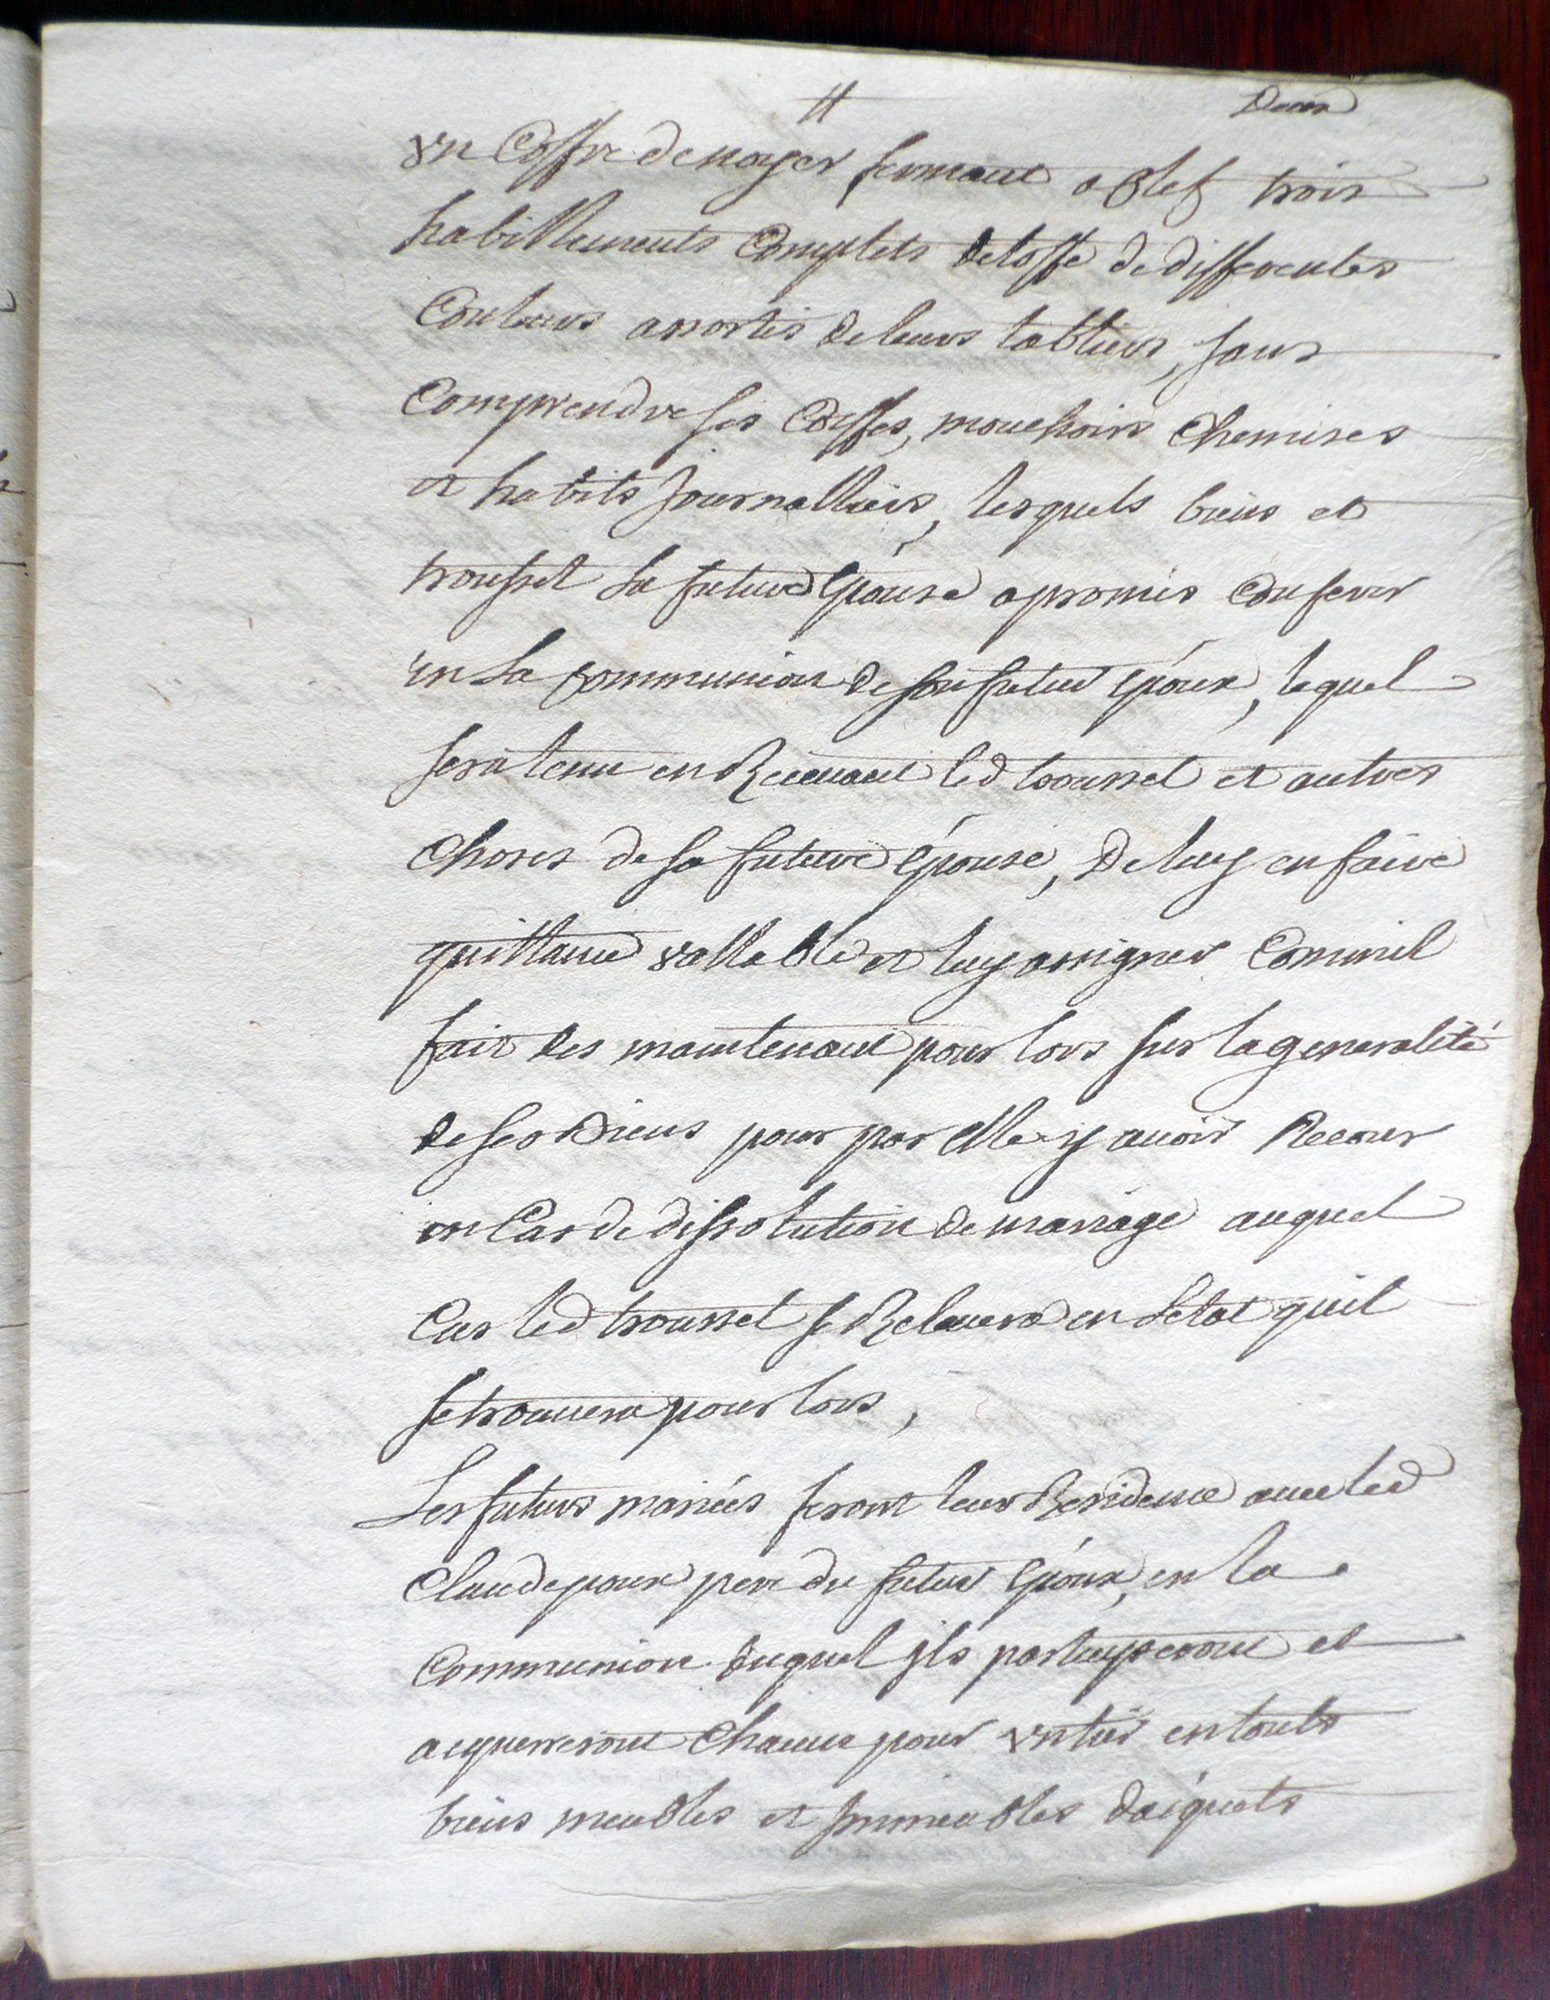 Deux
vn Coffre de noyer fermant a Clef trois
habillements Complets detoffe de differentes
Couleurs assortis de leurs tabliers, sans
Comprendre ses Coiffes, mouchoirs Chemises
et habits Journalliers, lesquels biens et
trousset La future Epouse a promis Conferer
en La Communion de son futur Epoux, lequel
sera tenu en Recevant led trousset et autres
Choses de sa future Epouse, De luy en faire
quittance vallable et luy assigner Commil
fait des maintenant pour lors sur la generalité
de ses Biens pour par elle y avoir Recour
en Cas de dissolution de mariage auquel
Cas led trousset se Relevera en Letat quil
se trouvera pour lors,
Les futurs mariés feront leur Residence avec led
Claude poux pere du futur Epoux, en la
Communion duquel jls partagseront et
acquerreront Chacun pour vn tier en touts
biens meubles et Jmmeubles daiquets